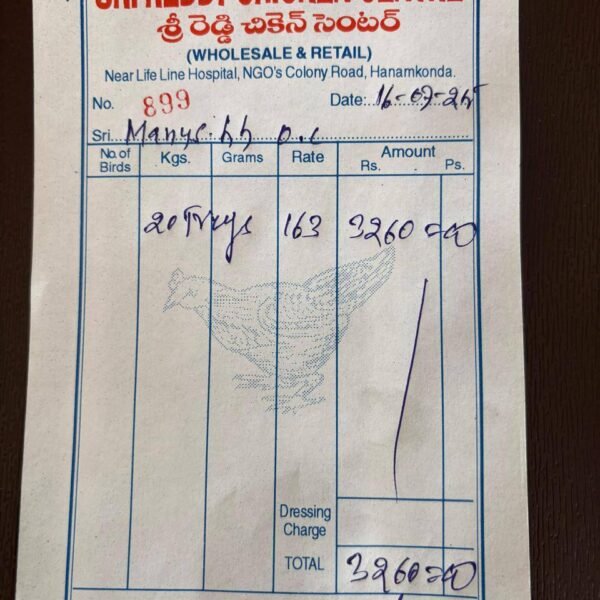 శ్రీ రెడ్డి చికెన్ సెంటర్
(WHOLESALE & RETAIL)
Near Life Line Hospital, NGO's Colony Road, Hanamkonda.
No. 899 Date: 16-07-25
Sri.
No. of Birds Kgs. Grams Rate Amount Rs. Ps.
20 Trays 163 3260=00
Dressing Charge
TOTAL 3260=00